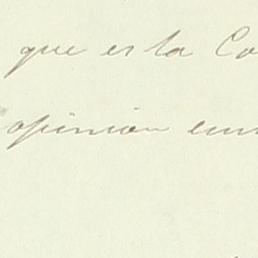 que es la Co
opinion eu